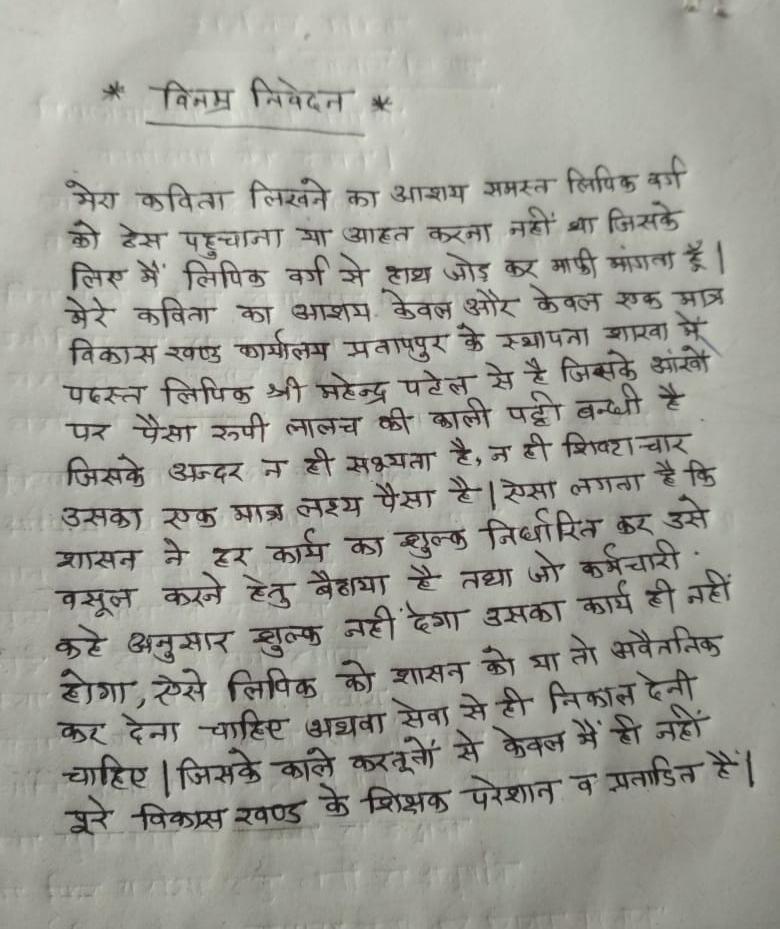 * विनम्र निवेदन *
मेरा कविता लिखने का आशय समस्त लिपिक वर्ग
को ठेस पहुचाना या आहत करना नहीं था जिसके
लिए मैं लिपिक वर्ग से हाथ जोड़ कर माफी मांगता हूँ |
मेरे कविता का आशय केवल और केवल एक मात्र
विकास खण्ड कार्यालय प्रतापपुर के स्थापना शाखा में
पदस्त लिपिक श्री महेन्द्र पटेल से है जिसके आंखों
पर पैसा रूपी लालच की काली पट्टी बन्धी है
जिसके अन्दर न ही सभ्यता है, न ही शिष्टाचार
उसका एक मात्र लक्ष्य पैसा है | ऐसा लगता है कि
शासन ने हर कार्य का शुल्क निर्धारित कर उसे
वसूल करने हेतु बैठाया है तथा जो कर्मचारी
कहे अनुसार शुल्क नहीं देगा उसका कार्य ही नहीं
होगा, ऐसे लिपिक को शासन को या तो अवैतनिक
कर देना चाहिए अथवा सेवा से ही निकाल देनी
चाहिए | जिसके काले करतूतों से केवल मैं ही नहीं
पूरे विकास खण्ड के शिक्षक परेशान व प्रताडित हैं |